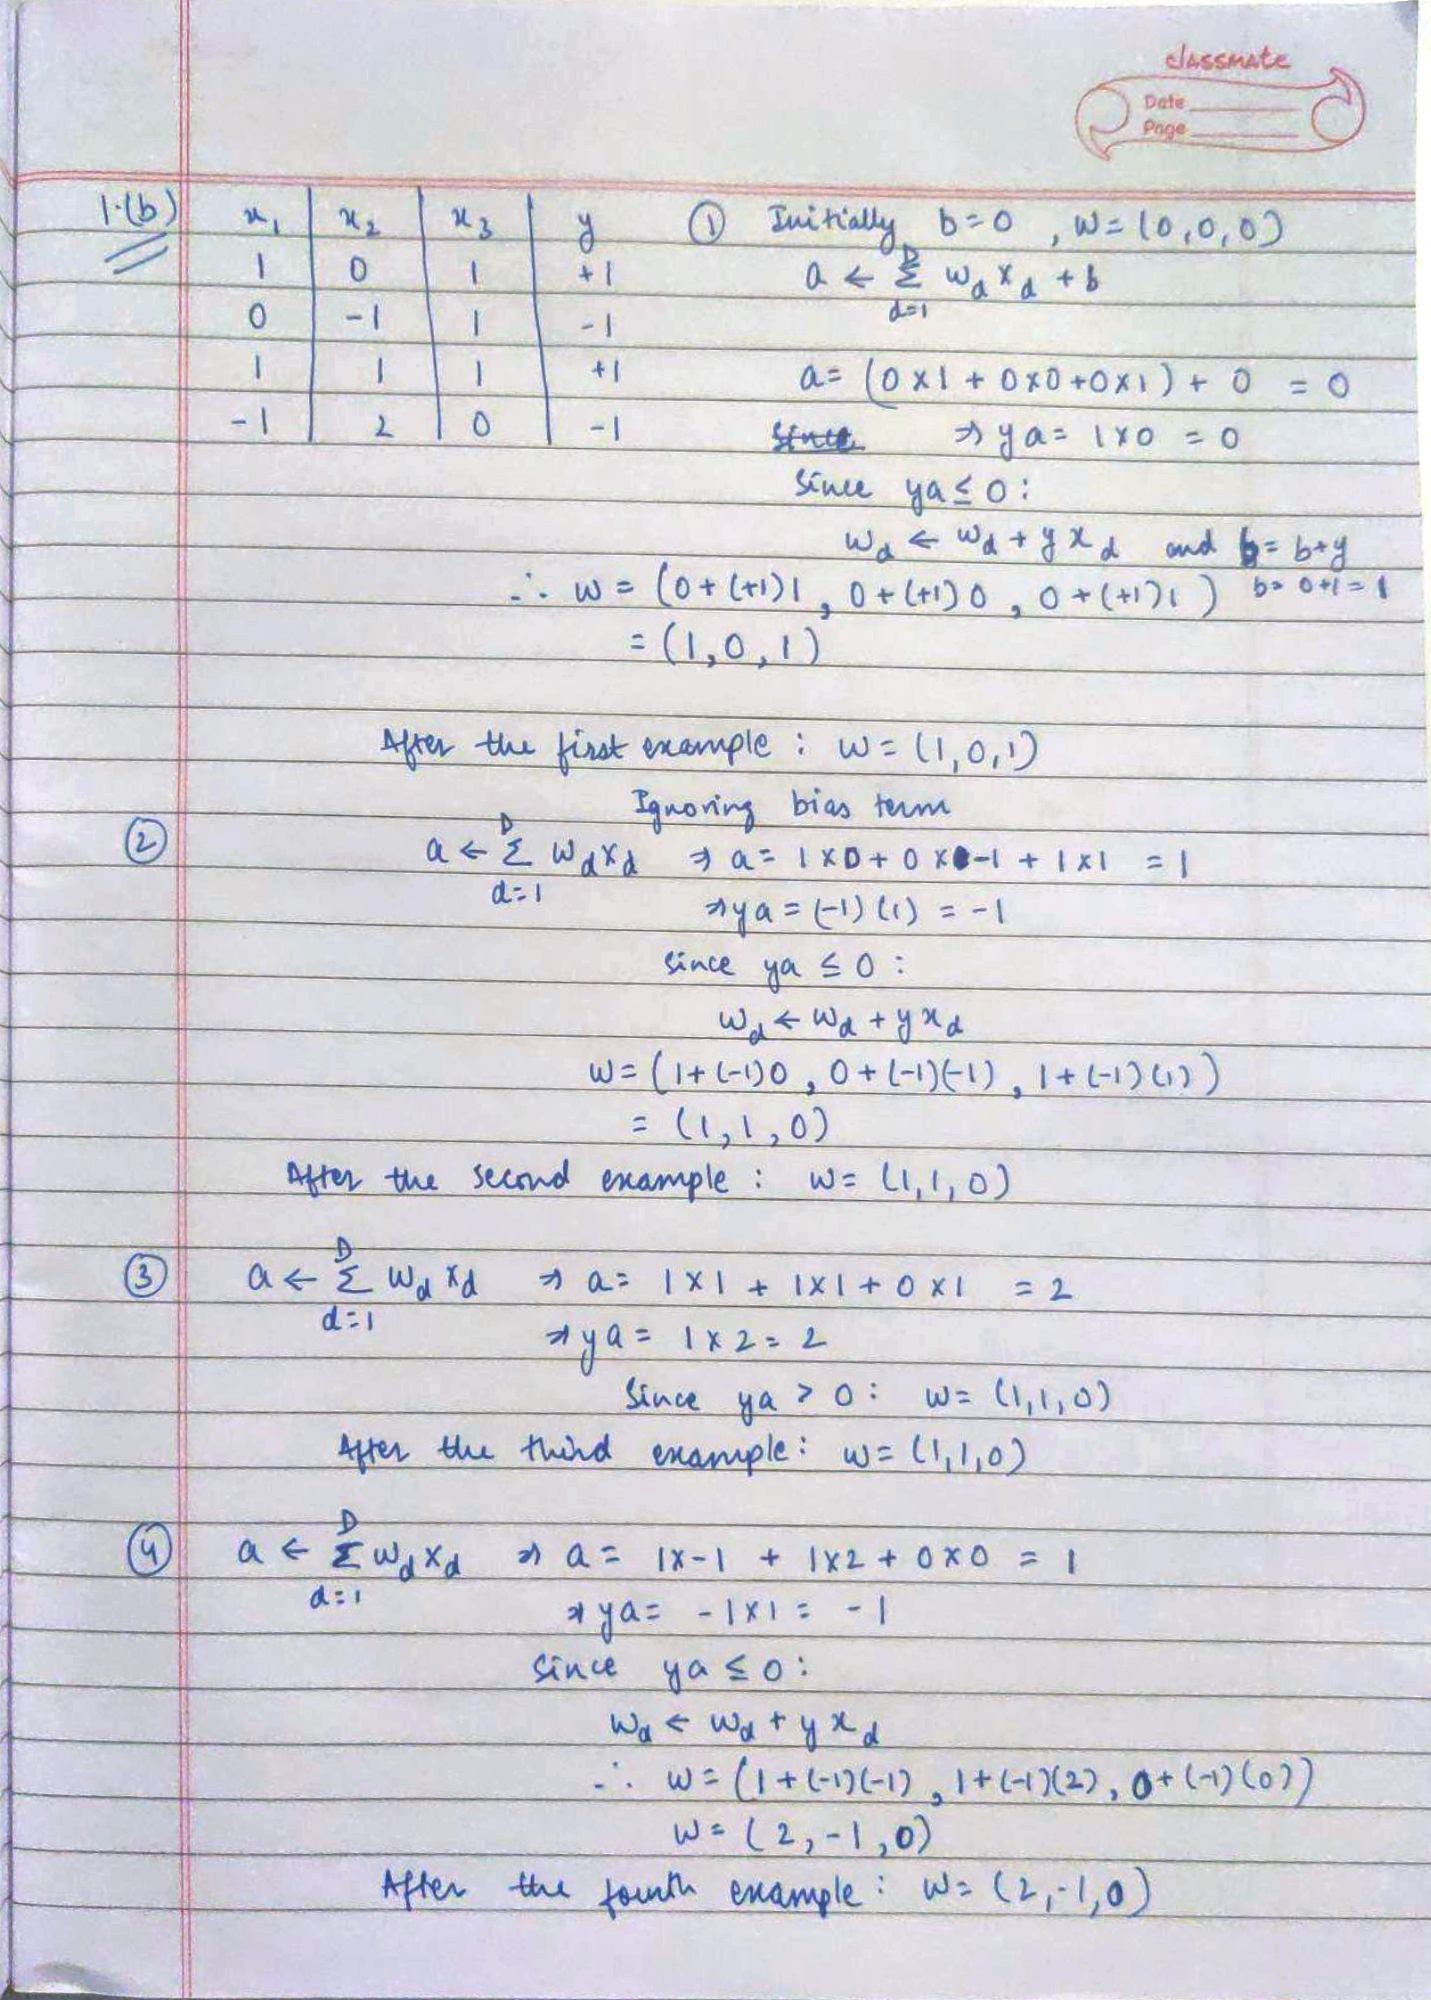 classmate
Date
Page
1.(b)
x₁ x₂ x₃ y
1 0 1 +1
0 -1 1 -1
1 1 1 +1
-1 2 0 -1
① Initially b=0 , w=(0,0,0)
a ← Σ_{d=1}^{D} w_d x_d + b
a= (0×1 + 0×0+0×1) + 0 = 0
⇒ ya= 1×0 = 0
Since ya≤0:
w_d ← w_d + y x_d and b= b+y
∴ w = (0+(+1)1, 0+(+1)0, 0+(+1)1) b= 0+1=1
= (1,0,1)
After the first example : w=(1,0,1)
Ignoring bias term
② a ← Σ_{d=1}^{D} w_d x_d ⇒ a= 1×0+ 0×-1 + 1×1 = 1
⇒ya = (-1)(1) = -1
Since ya ≤ 0 :
w_d ← w_d + y x_d
w= (1+(-1)0, 0+(-1)(-1), 1+(-1)(1))
= (1,1,0)
After the second example : w= (1,1,0)
③ a ← Σ_{d=1}^{D} w_d x_d ⇒ a= 1×1 + 1×1+ 0×1 = 2
⇒ya= 1×2= 2
Since ya > 0: w= (1,1,0)
After the third example: w= (1,1,0)
④ a ← Σ_{d=1}^{D} w_d x_d ⇒ a= 1×-1 + 1×2 + 0×0 = 1
⇒ya= -1×1= -1
Since ya≤0:
w_d ← w_d + y x_d
∴ w=(1+(-1)(-1), 1+(-1)(2), 0+(-1)(0))
w= (2,-1,0)
After the fourth example: w= (2,-1,0)